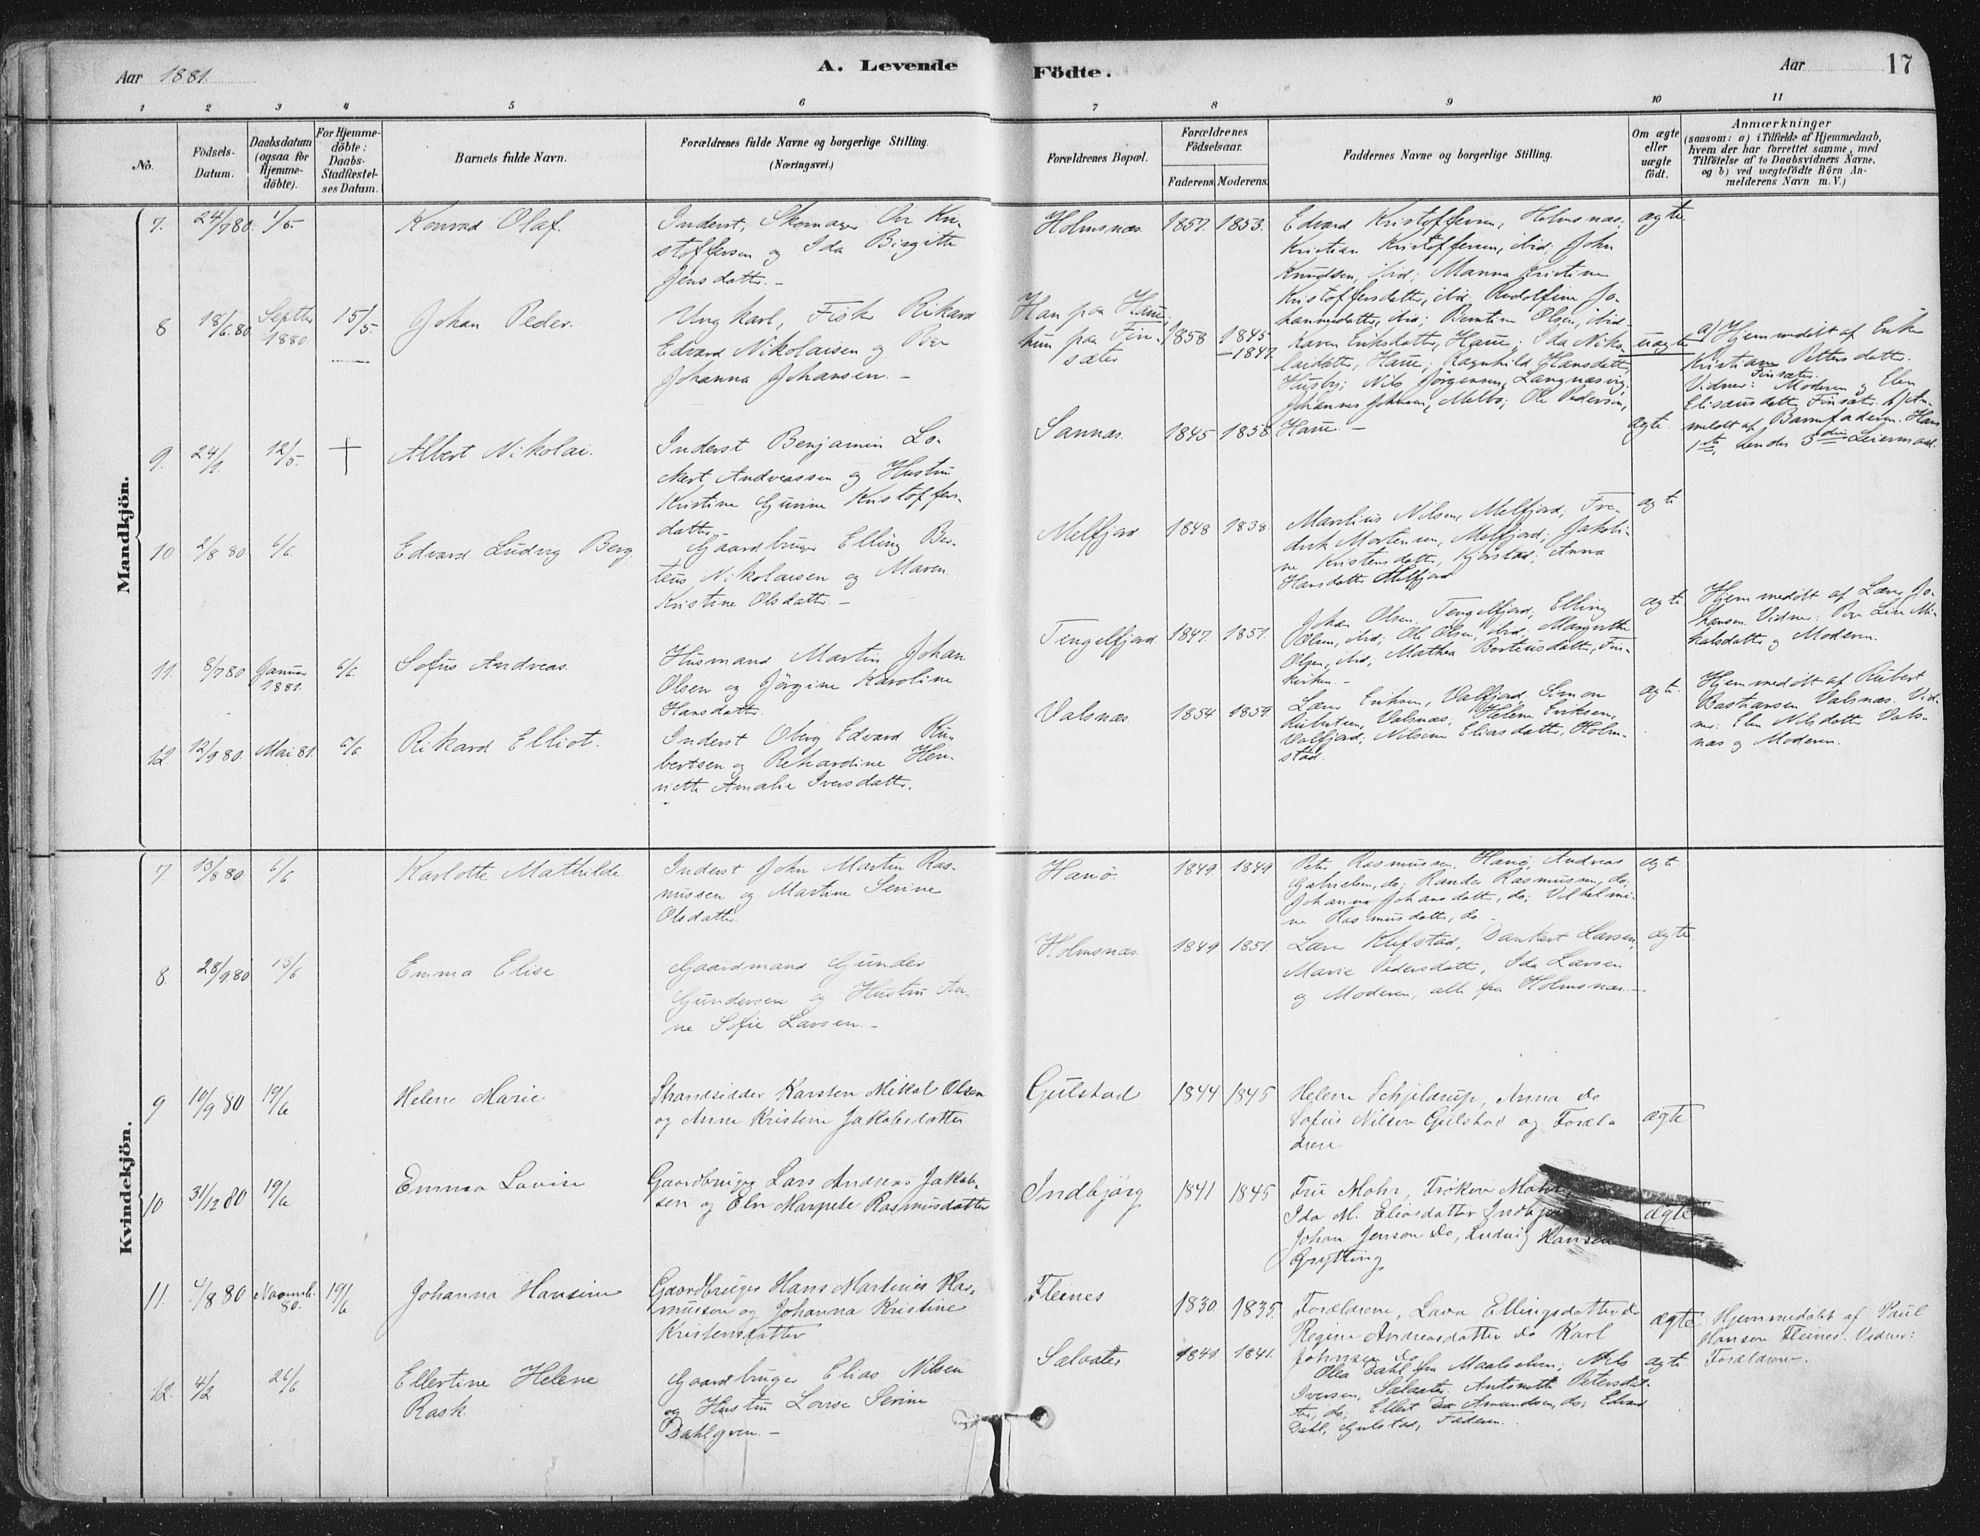 Aar 1881.
A. Levende Födte.
Aar
17
1 2 3 4 5 6 7 8 9 10 11
No.
Födsels-Datum.
Daabsdatum (ogsaa for Hjemmedöbte).
For Hjemmedöbte: Daabs-Stadfæstelses Datum.
Barnets fulde Navn.
Forældrenes fulde Navne og borgerlige Stilling. (Næringsvei.)
Forældrenes Bopæl.
Forældrenes Födselsaar.
Faderens. Moderens.
Faddernes Navne og borgerlige Stilling.
Om ægte eller uægte födt.
Anmærkninger
(saasom: a) i Tilfælde af Hjemmedaab,
hvem der har forrettet samme, med
Tilföielse af to Daabsvidners Navne,
og b) ved uægtefödte Börn An-
melderens Navn m. V.)
Mandkjön.
7. 24/9 80. 1/5. Konrad Olaf.
Inderst, Skomager Kri-
stoffersen og Ida Birgitte
Jensdatter. —
Holmsnæs. 1857. 1853.
Edvard Kristoffersen, Holmsnæs.
Kristian Kristoffersen, ibid. John
Knudsen, ibid; Manna Kristine
Kristoffersdatter, ibid. Rudolfine Jo-
hannesdatter, ibid; Olsen, ibid.
ægte
8 18/6 80 Septbr 1880 15/5. Johan Peder.
Ungkarl, Fisker Rikard
Edvard Nikolaisen og Pige
Johanna Johansen. —
Han paa Haue.
hun paa Fin-
sæter
1858 1845 — 1847.
Karen Eriksdatter, Haue; Ida Niko-
laidatter, Haue; Ragnhild Hansdatter,
Husby; Nils Jörgensen, Langnæsvig;
Johannes Johnsen, Melbo; Ole Pedersen,
Haue. —
uægte
a) Hjemmedöbt af Enke
Kristiane Pettersdatter.
Finsæter.
Vidner: Moderen og Elen
Elisæusdatter, Finsæter. b) An-
meldt af Barnefaderen. Hans
1ste, hendes 3die Leiermaal.
9. 24/1 12/5. † Albert Nikolai.
Inderst Benjamin Lo-
Andreassen og Hustru
Kristine Gurine Kristoffers-
datter —
Sannæs. 1845 1858
ægte.
10 2/8 80 6/6 Edvard Ludvig Berg.
Gaardbruger Elling Ber-
teus Nikolaisen og Maren
Kristine Olsdatter —
Melfjord 1848 1838.
Marelius Nilsen, Melfjord, Fre-
drik Mortensen, Melfjord; Jakobi-
ne Kristensdatter, Kjörstad; Anna
Hansdatter Melfjord
ægte
11. 8/7 80 Januar 1881. 6/6. Sofus Andreas.
Husmand Martin Johan
Olsen og Jörgine Karoline
Hansdatter.
Tengelfjord 1847. 1851.
Johan Olsen, Tengelfjord, Elling
Olsen, ibid; Ole Olsen, ibid, Margrethe
Olsen, ibid; Mathea Berteusdatter, Fin-
kirken. —
ægte
Hjemmedöbt af Lars Jo-
hansen. Vidner: Pige Line Mi-
kalsdatter og Moderen.
12 12/9 80. Mai 81. 6/6 Rikard Elliot.
Inderst Oberg Edvard Ru-
bertsen og Rikardine Hen-
riette Amalie Iversdatter.
Valsnæs. 1854 1859.
Lars Eriksen, Valfjord, Simon
Rubertsen, Valsnæs; Helene Eriksen,
Valfjord; Nilsine Eliasdatter, Holm-
stad.
ægte.
Hjemmedöbt af Rubert
Bastiansen Valsnæs. Vid-
ner: Elen Nilsdatter Vals-
næs og Moderen.
Kvindekjön.
7 13/8 80 6/6 Karlotte Mathilde
Inderst John Martin Ras-
mussen og Martine Serine
Olsdatter.
Hanö. 1849 1849
Peter Rasmussen, Hanö, Andreas
Gabrielsen, do; Rander Rasmussen, do;
Johanna Johansdatter, do; Vilhelmi-
ne Rasmusdatter, do —
ægte.
8 28/9 80 13/6 Emma Elise
Gaardmand Gunder
Gundersen og Hustru An-
ne Sofie Larsen. —
Holmsnæs. 1849 1851.
Lars Klefstad, Dankert Larsen,
Marie Pedersdatter, Ida Larsen
og Moderen, alle fra Holmsnæs. —
ægte
9 10/9 80 19/6 Helene Marie
Strandsidder Karsten Mikal Olsen
og Anne Kristine Jakobsdatter
Gulstad 1844 1845
Helene Schjelderup, Anna do
Sofus Nilsen Gulstad og Foræl-
drene
ægte
10 31/12 80 19/6 Emma Lovise
Gaardbruger Lars Andreas Jakob-
sen og Elen Margrete Rasmusdatter
Indbjörg 1841 1845
Fru Mohr, Fröken Mohr,
Ida M. Eliasdatter Indbjörg
Johan Jensen do, Ludvig Hansen
Grytting
ægte
11. 4/8 80 Novemb. 80. 19/6 Johanna Hansine
Gaardbruger Hans Martinus Ras-
mussen og Johanna Kristine
Kristensdatter
Fleines 1830. 1835.
Forældrene, Lava Ellingsdatter do
Regine Andreasdatter do Karl
Johnsen do
ægte.
Hjemmedöbt af Paul
Hansen Fleines. Vidner:
Forældrene.
12. 4/2 26/6 Ellertine Helene
Rask
Gaardbruger Elias Nilsen
og Hustru Lovise Serine
Dahlgren. —
1841 1841.
Ole Dahl fra Maalselven; Nils
Iversen, Antonette Petersdat-
ter, do; Ellert Amundsen, do; Edvard
Dahl, Gulstad, Faderen.
ægte